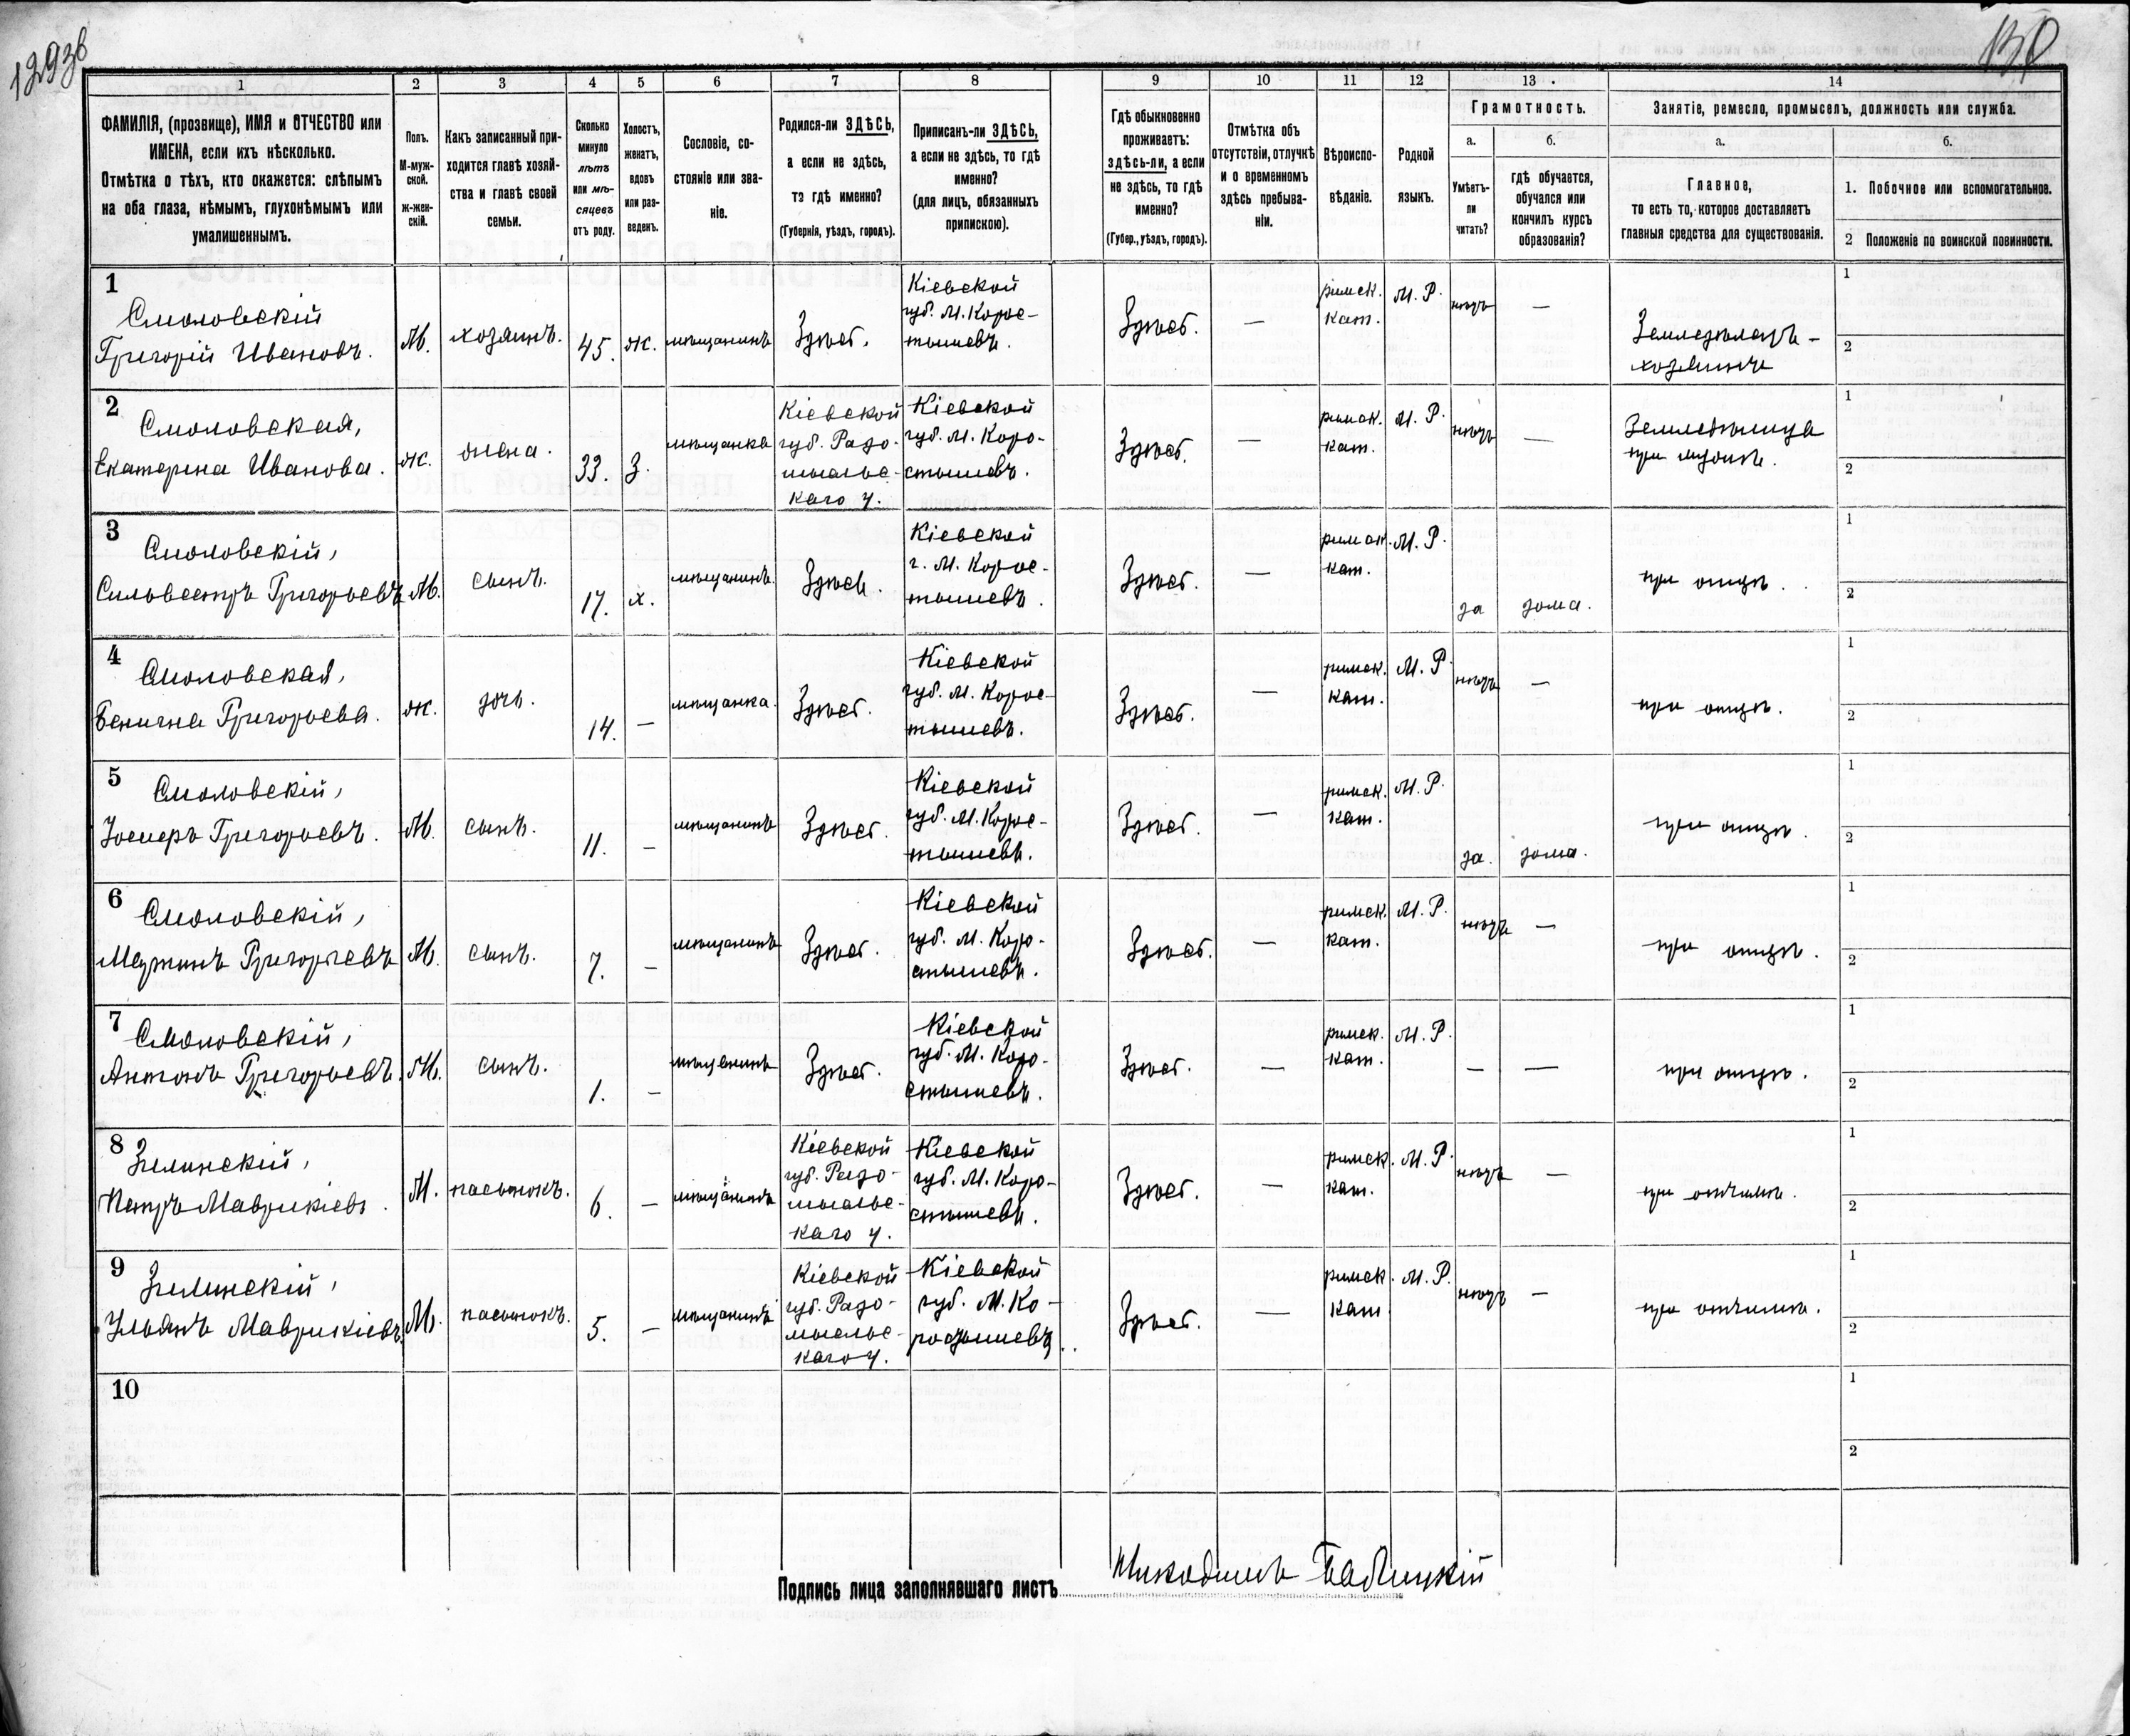 1293в
1
2
3
4
5
6
7
8
9
10
11
12
13
14
ФАМИЛІЯ, (прозвище), ИМЯ и ОТЧЕСТВО или
ИМЕНА, если ихъ нѣсколько.
Отмѣтка о тѣхъ, кто окажется: слѣпымъ
на оба глаза, нѣмымъ, глухонѣмымъ или
умалишеннымъ.
Полъ.
М-муж-
ской.
ж-жен-
скій.
Какъ записанный при-
ходится главѣ хозяй-
ства и главѣ своей
семьи.
Сколько
минуло
лѣтъ
или мѣ-
сяцевъ
отъ роду.
Холостъ,
женатъ,
вдовъ
или раз-
веденъ.
Сословіе, со-
стояніе или зва-
ніе.
Родился-ли ЗДѢСЬ,
а если не здѣсь,
то гдѣ именно?
(Губернія, уѣздъ, городъ).
Приписанъ-ли ЗДѢСЬ,
а если не здѣсь, то гдѣ
именно?
(для лицъ, обязанныхъ
припискою).
Гдѣ обыкновенно
проживаетъ:
здѣсь-ли, а если
не здѣсь, то гдѣ
именно?
(Губер., уѣздъ, городъ).
Отмѣтка объ
отсутствіи, отлучкѣ
и о временномъ
здѣсь пребыва-
ніи.
Вѣроиспо-
вѣданіе.
Родной
языкъ.
Грамотность.
а.
Умѣетъ-
ли
читать?
б.
гдѣ обучается,
обучался или
кончилъ курсъ
образованія?
Занятіе, ремесло, промыселъ, должность или служба.
а.
Главное,
то есть то, которое доставляетъ
главныя средства для существованія.
б.
1. Побочное или вспомогательное.
2 Положеніе по воинской повинности.
1
Смоловскій
Григорій Ивановъ.
М.
хозяинъ.
45.
ж.
мѣщанинъ
Здѣсь.
Кіевской
губ. М. Корос-
тышевъ.
Здѣсь.
—
римск.
кат.
М. Р.
нѣтъ
—
Земледѣлецъ -
хозяинъ
1
2
2
Смоловская,
Екатерина Иванова.
ж.
жена.
33.
З.
мѣщанка
Кіевской
губ. Радо-
мысльс-
каго у.
Кіевской
губ. М. Коро-
стышевъ.
Здѣсь.
—
римск.
кат.
М. Р.
нѣтъ
—
при мужѣ.
1
2
3
Смоловскій,
Сильвестръ Григорьевъ
М.
сынъ.
17.
х.
мѣщанинъ.
Здѣсь.
Кіевской
г. М. Корос-
тышевъ.
Здѣсь.
—
римск.
кат.
М. Р.
да
дома.
при отцѣ.
1
2
4
Смоловская,
Бенигна Григорьева.
ж.
дочь.
14.
—
мѣщанка.
Здѣсь.
Кіевской
губ. М. Корос-
тышевъ.
Здѣсь.
—
римск.
кат.
М. Р.
нѣтъ
—
при отцѣ.
1
2
5
Смоловскій,
Іосифъ Григорьевъ.
М.
сынъ.
11.
—
мѣщанинъ
Здѣсь.
Кіевской
губ. М. Корос-
тышевъ.
Здѣсь.
—
римск.
кат.
М. Р.
да.
дома.
при отцѣ.
1
2
6
Смоловскій,
Мартинъ Григорьевъ
М.
сынъ.
7.
—
мѣщанинъ
Здѣсь.
Кіевской
губ. М. Коро-
стышевъ.
Здѣсь.
—
римск.
кат.
М. Р.
нѣтъ
—
при отцѣ.
1
2
7
Смоловскій,
Антонъ Григорьевъ.
М.
сынъ.
1.
—
мѣщанинъ
Здѣсь.
Кіевской
губ. М. Коро-
стышевъ.
Здѣсь.
—
римск.
кат.
М. Р.
—
—
при отцѣ.
1
2
8
Зилинскій,
Петръ Маврикіевъ.
М.
пасынокъ.
6.
—
мѣщанинъ
Кіевской
губ. Радо-
мысльс-
каго у.
Кіевской
губ. М. Коро-
стышевъ.
Здѣсь.
—
римск.
кат.
М. Р.
нѣтъ
—
при отчимѣ.
1
2
9
Зилинскій,
Ульянъ Маврикіевъ
М.
пасынокъ.
5.
—
мѣщанинъ
Кіевской
губ. Радо-
мысльс-
каго у.
Кіевской
губ. М. Ко-
ростышевъ.
Здѣсь.
—
римск.
кат
М. Р.
нѣтъ
—
при отчимѣ.
1
2
10
1
2
Подпись лица заполнявшаго листъ
Никодимъ Бабицкій